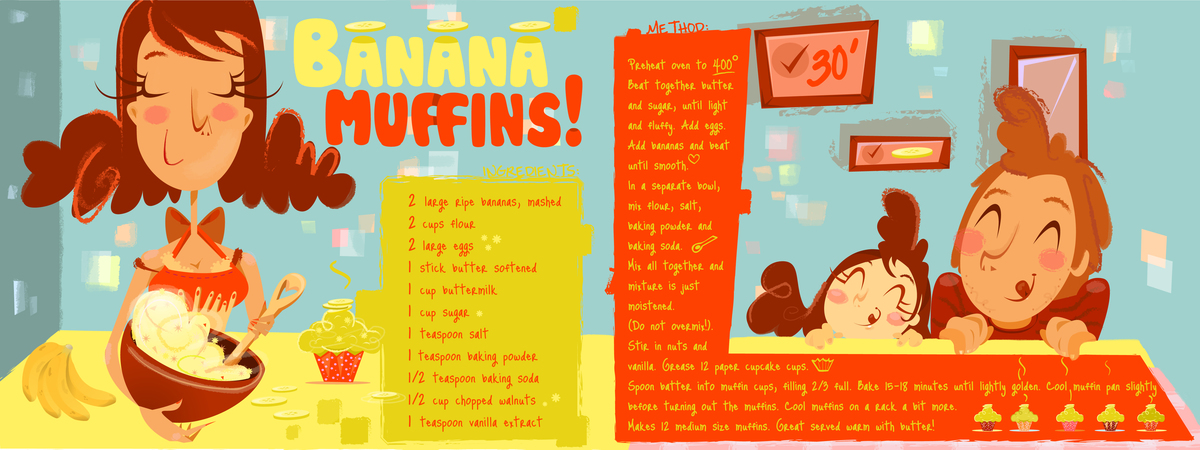 BANANA
MUFFINS!
INGREDIENTS
2 large ripe bananas, mashed
2 cups flour
2 large eggs
1 stick butter softened
1 cup buttermilk
1 cup sugar
1 teaspoon salt
1 teaspoon baking powder
1/2 teaspoon baking soda
1/2 cup chopped walnuts
1 teaspoon vanilla extract
METHOD:
Preheat oven to 400°
Beat together butter
and sugar, until light
and fluffy. Add eggs.
Add bananas and beat
until smooth.
In a separate bowl,
mix flour, salt,
baking powder and
baking soda.
Mix all together and
mixture is just
moistened.
(Do not overmix!).
Stir in nuts and
vanilla. Grease 12 paper cupcake cups.
Spoon batter into muffin cups, filling 2/3 full. Bake 15-18 minutes until lightly golden. Cool muffin pan slightly
before turning out the muffins. Cool muffins on a rack a bit more.
Makes 12 medium size muffins. Great served warm with butter!
30'